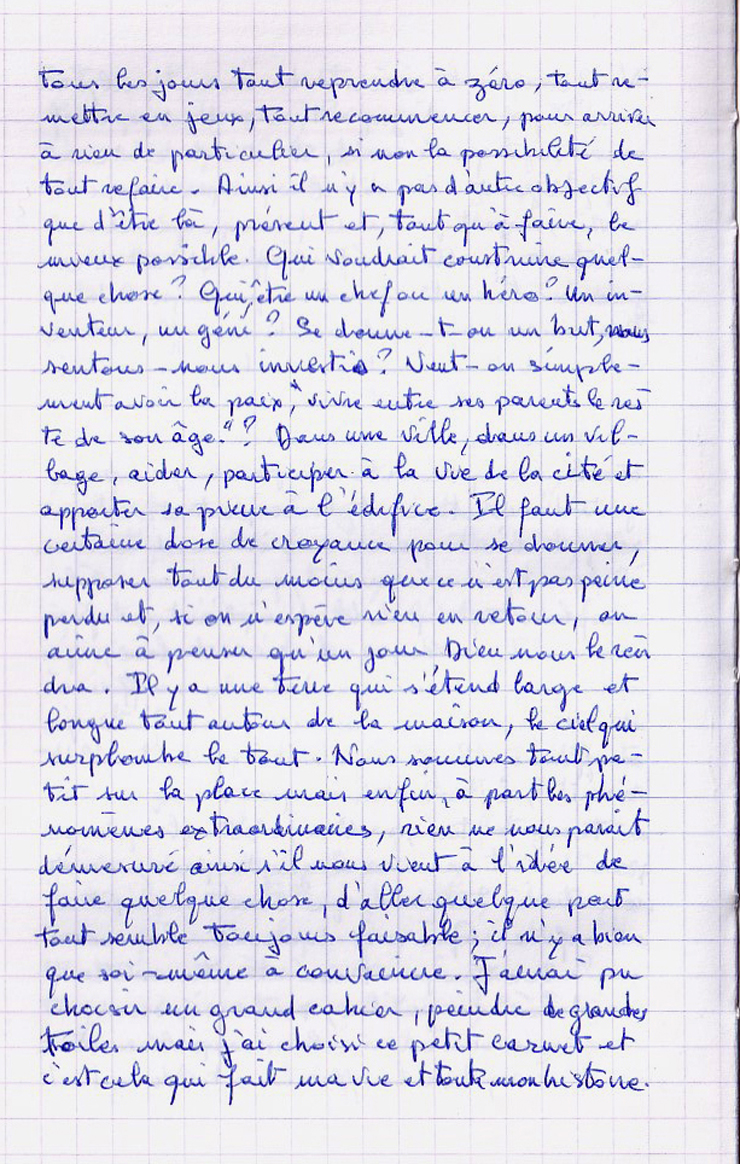 tous les jours tout reprendre à zéro, tout re-
mettre en jeux, tout recommencer, pour arriver
à rien de particulier, si non la possibilité de
tout refaire. Ainsi il n'y a pas d'autre objectif
que d'être là, présent et, tant qu'à faire, le
mieux possible. Qui voudrait construire quel-
que chose ? Qui, être un chef ou un héro ? Un in-
venteur, un géni ? Se donne-t-on un but, nous
sentons-nous investis ? Veut-on simple-
ment avoir la paix, "vivre entre ses parents le res
te de son âge." ? Dans une ville, dans un vil-
lage, aider, participer à la vie de la cité et
apporter sa pierre à l'édifice. Il faut une
certaine dose de croyance pour se donner,
supposer tout du moins que ce n'est pas peine
perdu et, si on n'espère rien en retour, on
aime à penser qu'un jour, Dieu nous le ren
dra. Il y a une terre qui s'étend large et
longue tout autour de la maison, le ciel qui
surplombe le tout. Nous sommes tout pe-
tit sur la place mais enfin, à part les phé-
nomènes extraordinaires, rien ne nous parait
démesuré ainsi s'il nous vient à l'idée de
faire quelque chose, d'aller quelque part
tout semble toujours faisable ; il n'y a bien
que soi-même à convaincre. J'aurai pu
choisir un grand cahier, peindre de grandes
toiles mais j'ai choisi ce petit carnet et
c'est cela qui fait ma vie et toute mon histoire.